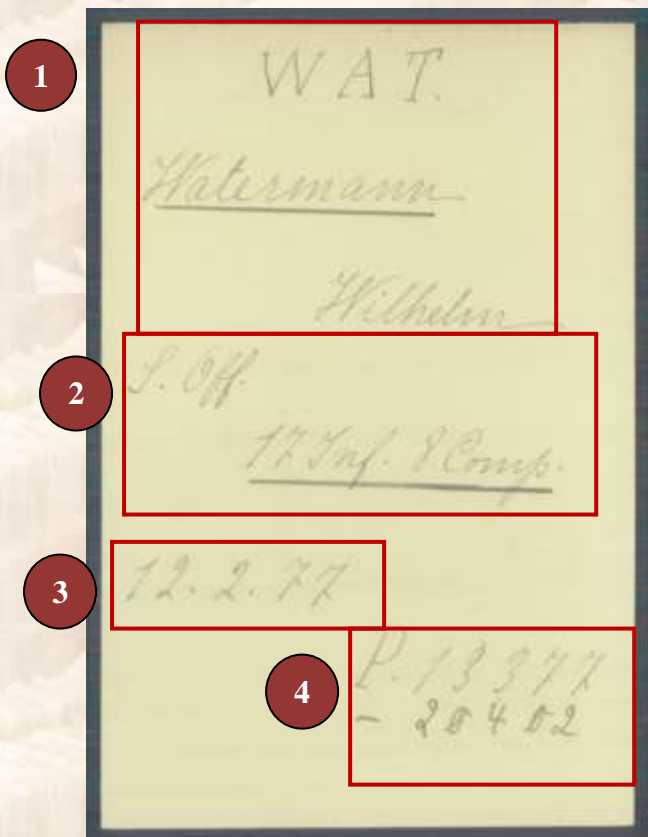 1
W A T.
Watermann
Wilhelm
2
S. Off.
17 Inf. 8 Comp.
3
12. 2. 77
4
P. 13377
- 20402